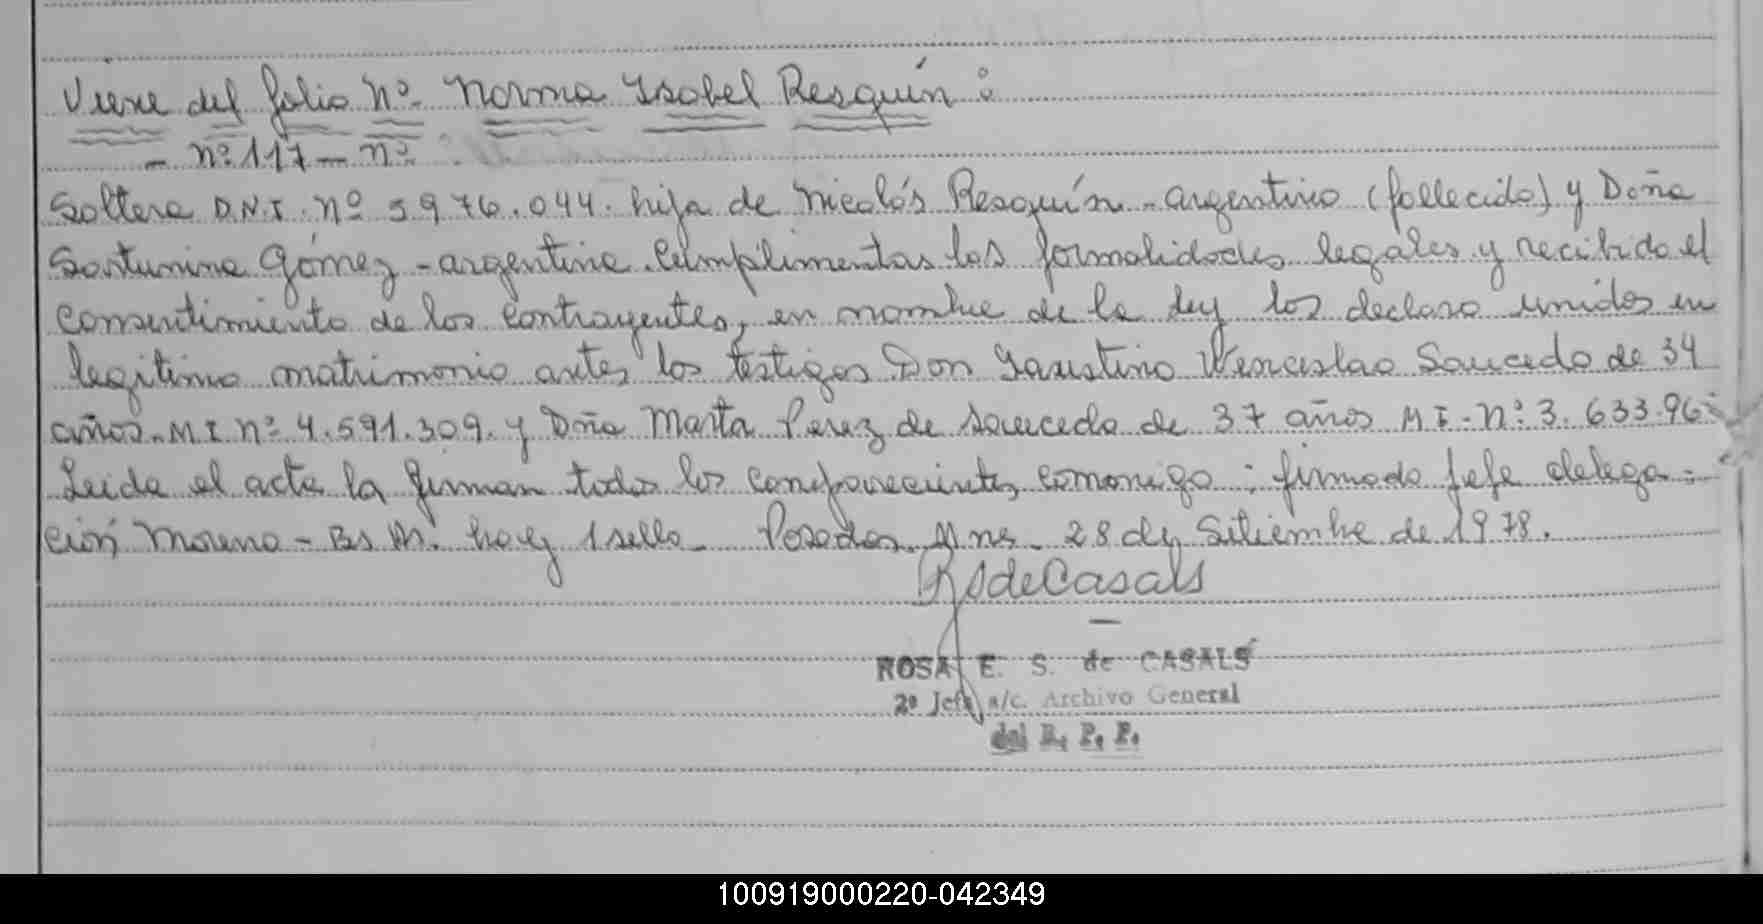 Viene del folio nº. Norma Isabel Resquín :
- nº 117 - nº
Soltera D.N.I. nº 5.976.044. hija de Nicolás Resquín - argentino (fallecido) y Doña
Saturnina Gómez - argentina. Cumplimentas las formalidades legales y recibido el
consentimiento de los contrayentes, en nombre de la ley los declaro unidos en
legítimo matrimonio antes los testigos Don Faustino Wenceslao Saucedo de 34
años. M I. nº 4.591.309. y Doña Marta Perez de Saucedo de 37 años M I - nº 3.633.96
Leida el acta la firman todos los comparecientes comonigo ; firmado Jefe delega=
ción Moreno - Bs As. hay 1 sello - Posadas Mns. 28 de Setiembre de 1978.
RSdeCasals
ROSA E. S. de CASALS
2º Jefe a/c. Archivo General
del R. P. P.
100919000220-042349